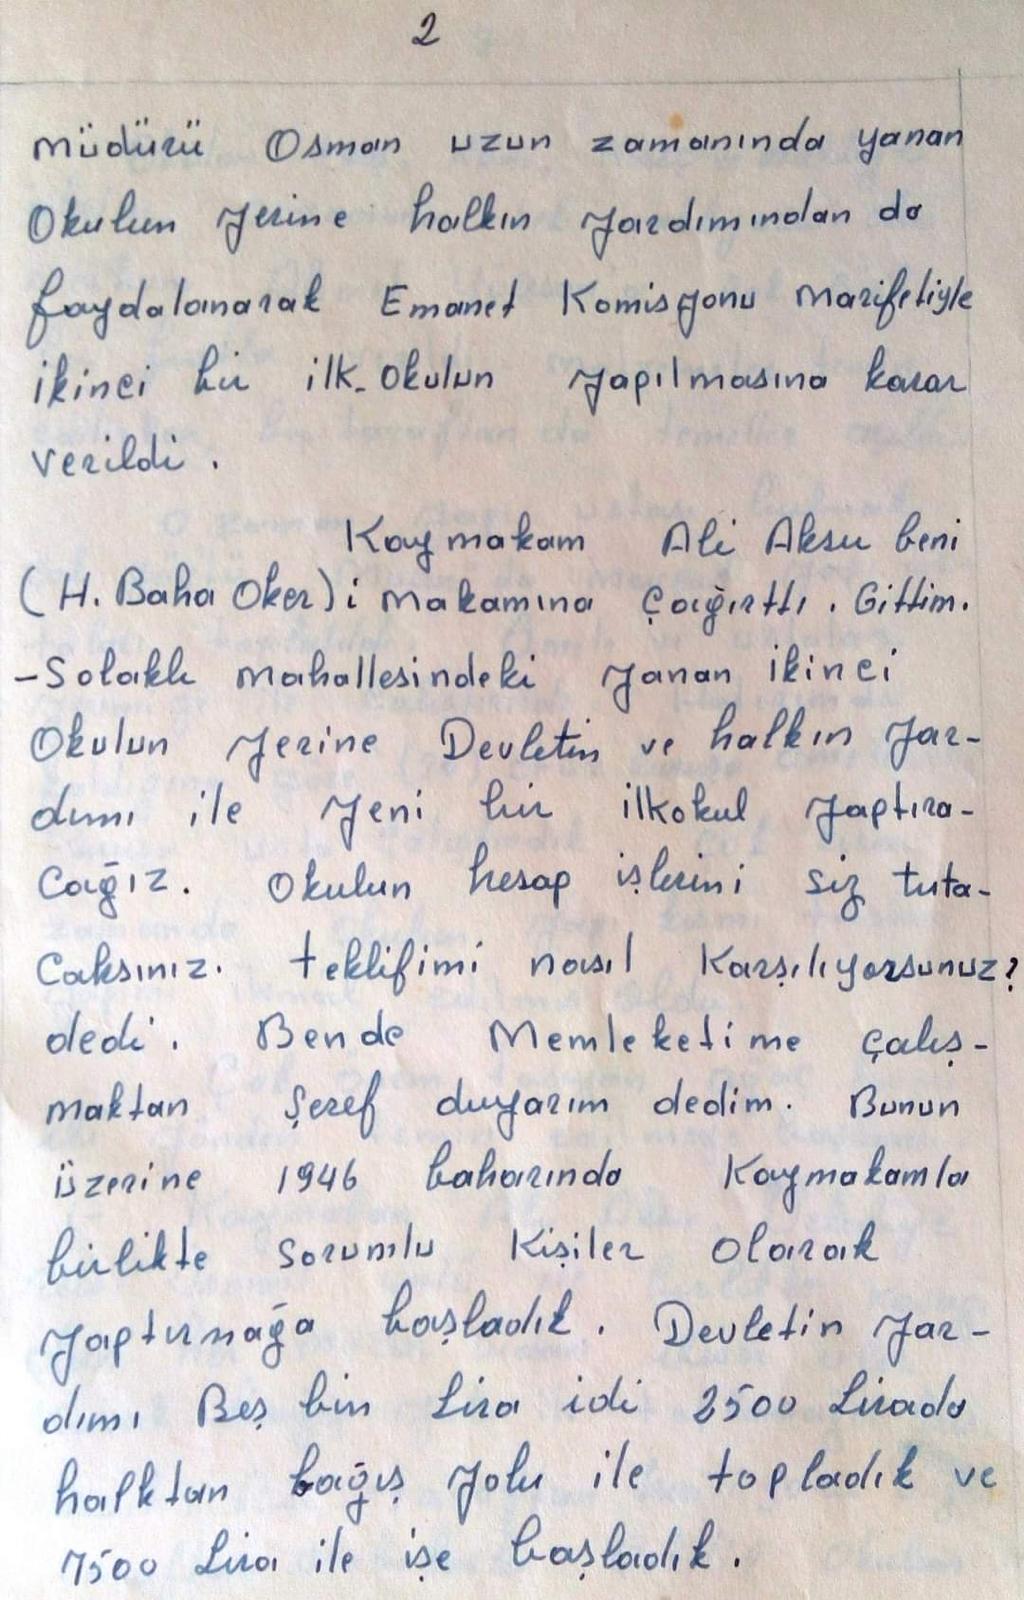 2
müdürü Osman uzun zamanında yanan
Okulun yerine halkın yardımından da
faydalanarak Emanet Komisyonu marifetiyle
ikinci bir ilk-Okulun yapılmasına karar
verildi.
Kaymakam Ali Aksu beni
(H. Baha Oker)i makamına çağırttı. Gittim.
-Solaklı mahallesindeki yanan ikinci
Okulun yerine Devletin ve halkın yar-
dımı ile yeni bir ilkokul yaptıra-
cağız. Okulun hesap işlerini siz tuta-
caksınız. teklifimi nasıl Karşılıyorsunuz?
dedi. Bende Memleketime çalış-
maktan şeref duyarım dedim. Bunun
üzerine 1946 baharında Kaymakamla
birlikte sorumlu Kişiler olarak
yaptırmağa başladık. Devletin yar-
dımı Beş bin Lira idi 2500 Lirada
halktan bağış yolu ile topladık ve
7500 Lira ile işe başladık.